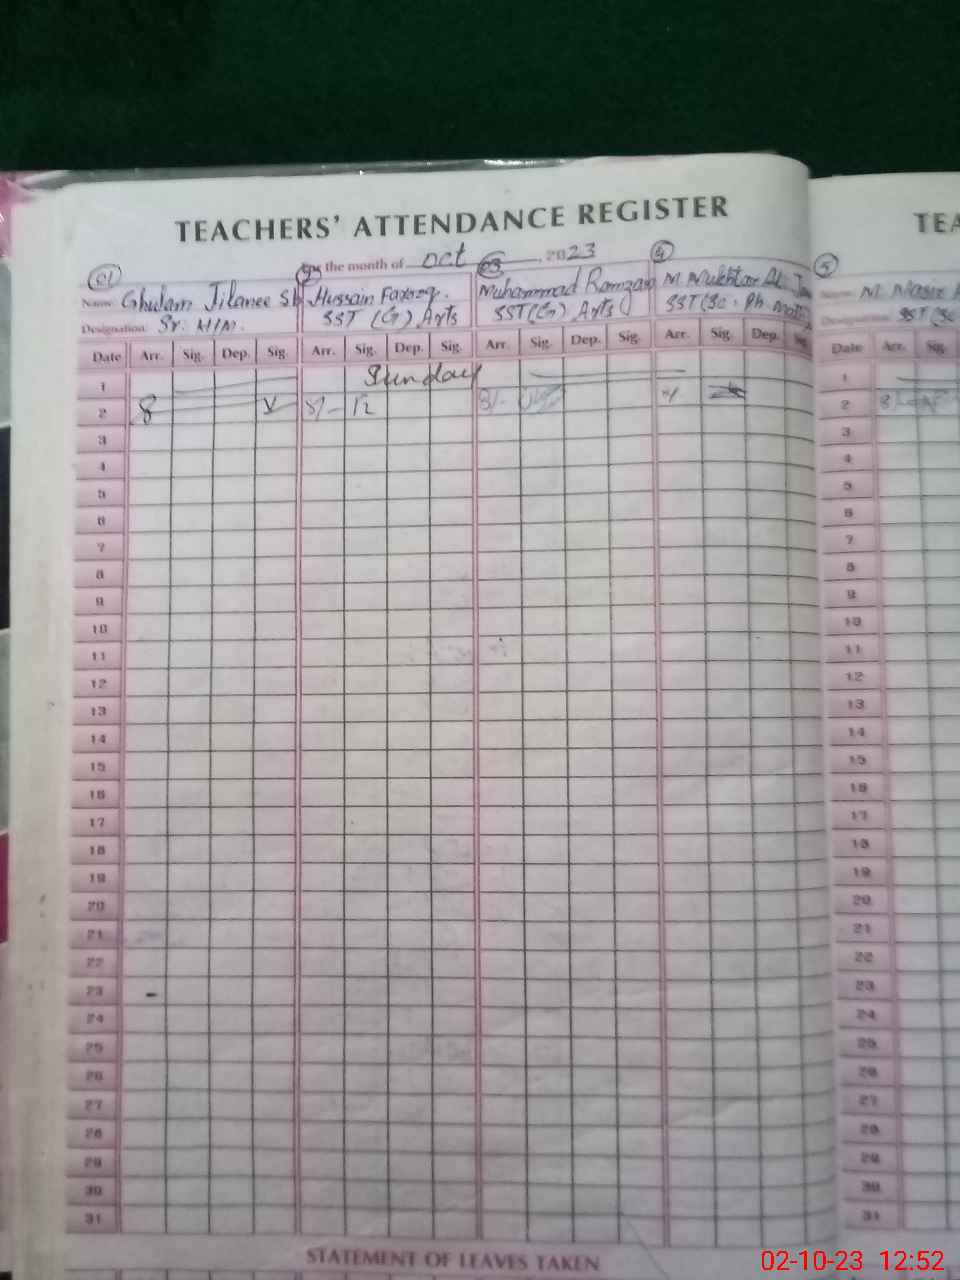 TEACHERS' ATTENDANCE REGISTER
the month of Oct, 2023
01
Name: Ghulam Jilanee
Designation: Sr. H/M.
Hussain Farooq.
SST (G) Arts
03
Muhammad Ramzan
SST (G) Arts
4
M Mukhtar
SST (Sc. Ph. Math
Date Arr. Sig. Dep. Sig. Arr. Sig. Dep. Sig. Arr. Sig. Dep. Sig. Arr. Sig. Dep. Sig.
1 Sunday
2 8 8/- 8/-
3
4
5
6
7
8
9
10
11
12
13
14
15
16
17
18
19
20
21
22
23
24
25
26
27
28
29
30
31
STATEMENT OF LEAVES TAKEN
TEA
5
Name: M. Nasir
Designation: SST (Sc
Date Arr. Sig.
1
2 8/-
3
4
5
6
7
8
9
10
11
12
13
14
15
16
17
18
19
20
21
22
23
24
25
26
27
28
29
30
31
02-10-23 12:52